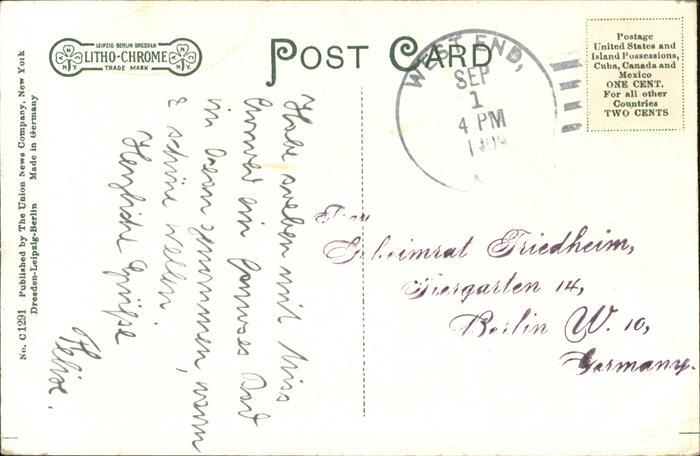 LEIPZIG BERLIN DRESDEN
LITHO-CHROME
TRADE MARK
POST CARD
WEST END,
SEP
1
4 PM
Postage
United States and
Island Possessions,
Cuba, Canada and
Mexico
ONE CENT.
For all other
Countries
TWO CENTS
No. C1291 Published by The Union News Company, New York
Dresden-Leipzig-Berlin Made in Germany
Habe soeben mit Miss
ein famoses Bad
im Ocean genommen, warm
& schöne Wellen.
Herzliche Grüsse
Felix.
Frau
Geheimrat Friedheim,
Tiergarten 14,
Berlin W. 10,
Germany.